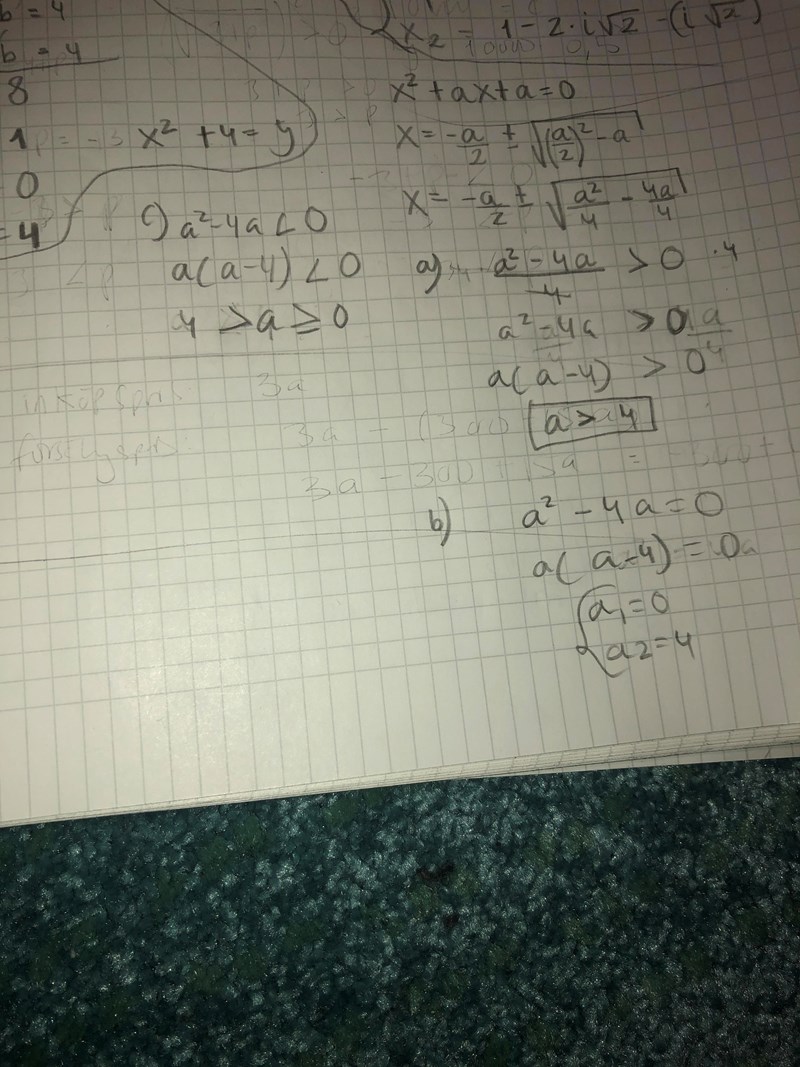 b = 4
b = 4
8
1
0
= 4
x² + 4 = y
c) a² - 4a < 0
a(a-4) < 0
4 > a ≥ 0
x₂ = 1 - 2·i√2 - (i√2)
x² + ax + a = 0
x = -a/2 ± √((a/2)² - a)
x = -a/2 ± √(a²/4 - 4a/4)
a) (a² - 4a)/4 > 0 ·4
a² - 4a > 0
a(a-4) > 0
a > 4
b) a² - 4a = 0
a(a-4) = 0
a₁ = 0
a2 = 4